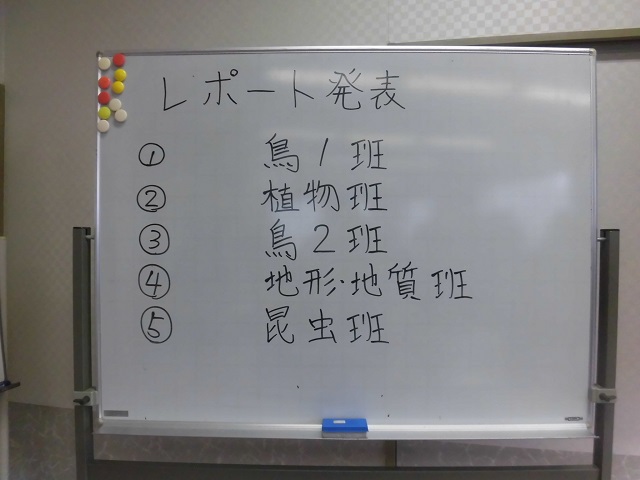 レポート発表
① 鳥1班
② 植物班
③ 鳥2班
④ 地形·地質班
⑤ 昆虫班